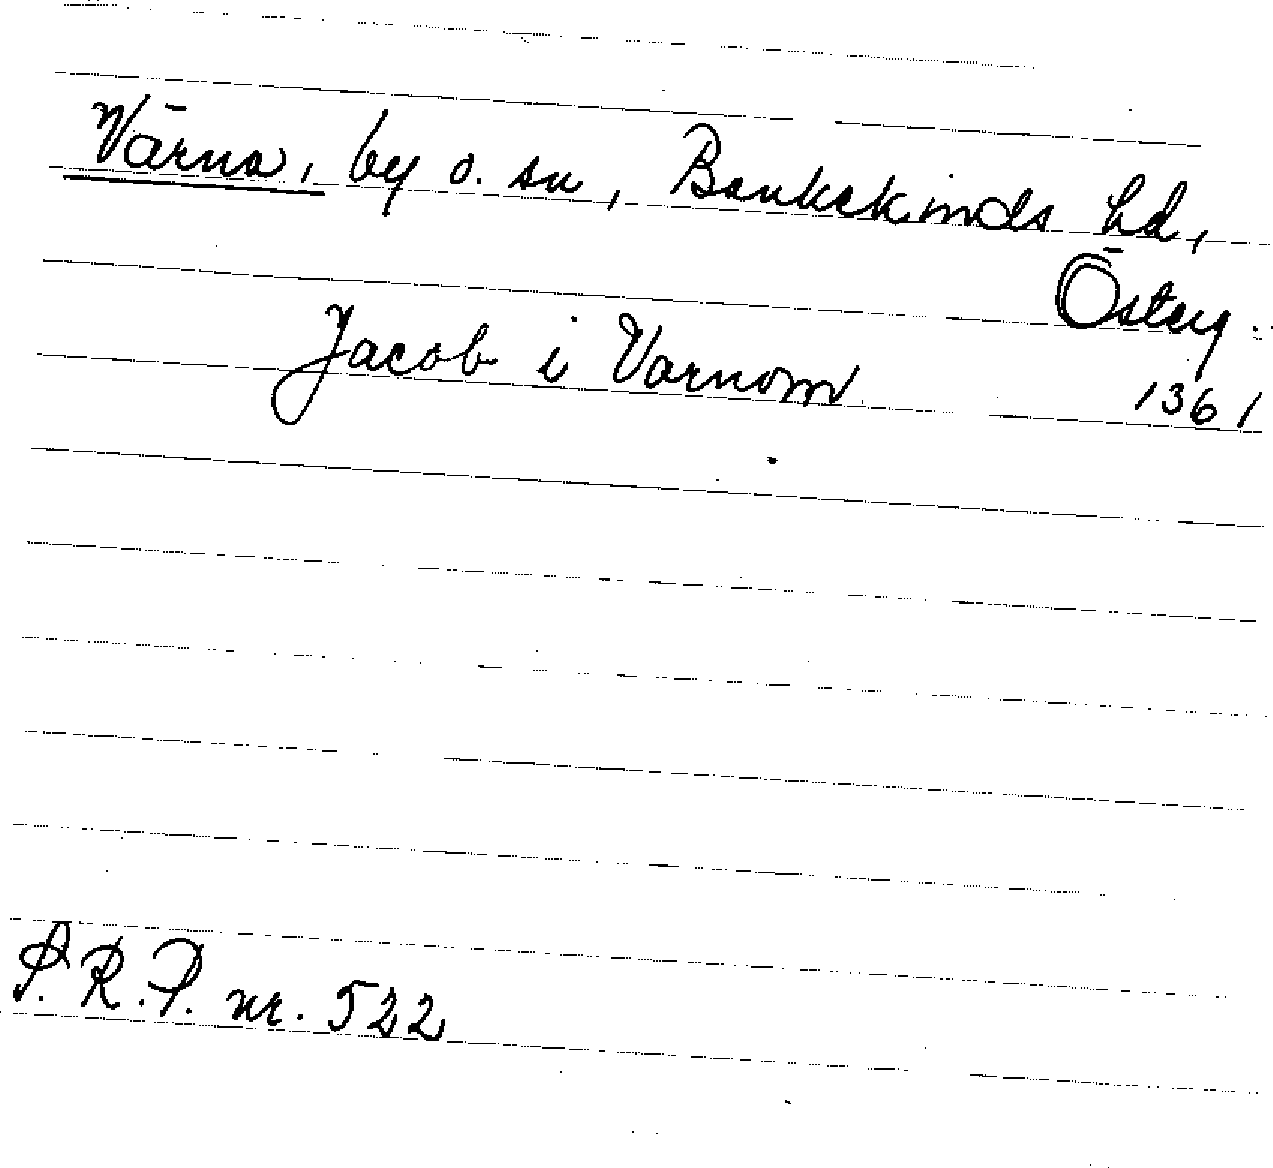 Värna, by o. sn, Bankekinds hd,
Österg.
Jacob i Varnom 1361
S.R.P. nr. 522